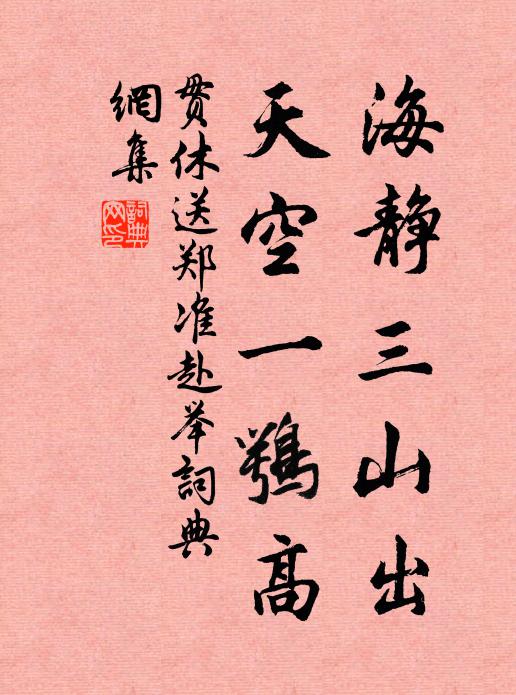 海静三山出
天空一鶚高
贯休送郑准赴举詞典
網集
詞典網印